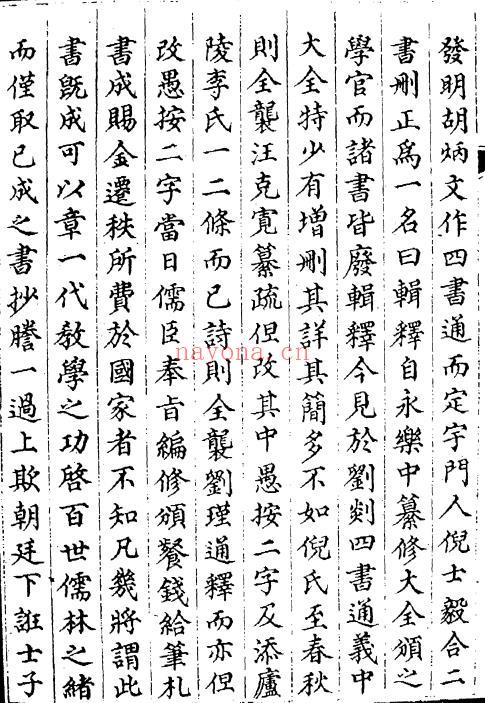 發明胡炳文作四書通而定宇門人倪士毅合二
書刪正爲一名曰輯釋自永樂中纂修大全頒之
學官而諸書皆廢輯釋今見於劉剡四書通義中
大全特少有增刪其詳其簡多不如倪氏至春秋
則全襲汪克寬纂疏但改其中愚按二字及添廬
陵李氏一二條而已詩則全襲劉瑾通釋而亦但
改愚按二字當日儒臣奉旨編修頒餐錢給筆札
書成賜金遷秩所費於國家者不知凡幾將謂此
書旣成可以章一代敎學之功啓百世儒林之緒
而僅取已成之書抄謄一過上欺朝廷下誑士子
nayona.cn